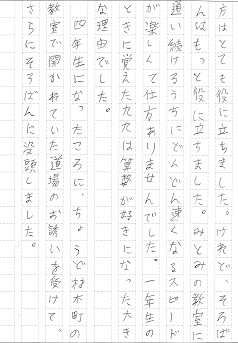 方はとても役に立ちました。けれど、そろば
んはもっと役に立ちました。みとみの教室に
通い続けるうちにどんどん速くなるスピード
が楽しくて仕方ありませんでした。一年生の
ときに覚えた九九は算数が好きになった大き
な理由でした。
四年生になったころに、ちょうど材木町の
教室で開かれていた道場のお誘いを受けて、
さらにそろばんに没頭しました。